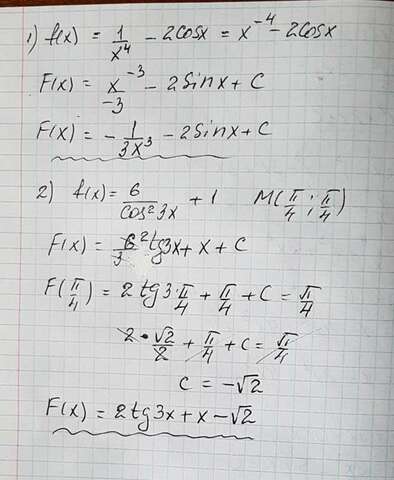 1) f(x) = 1/x⁴ - 2cosx = x⁻⁴ - 2cosx
F(x) = x⁻³/-3 - 2sinx + C
F(x) = - 1/3x³ - 2sinx + C
2) f(x) = 6/cos²3x + 1 M(π/4; π/4)
F(x) = 6/3 2 tg3x + x + C
F(π/4) = 2tg3·π/4 + π/4 + C = π/4
2·√2/2 + π/4 + C = π/4
C = -√2
F(x) = 2tg3x + x - √2